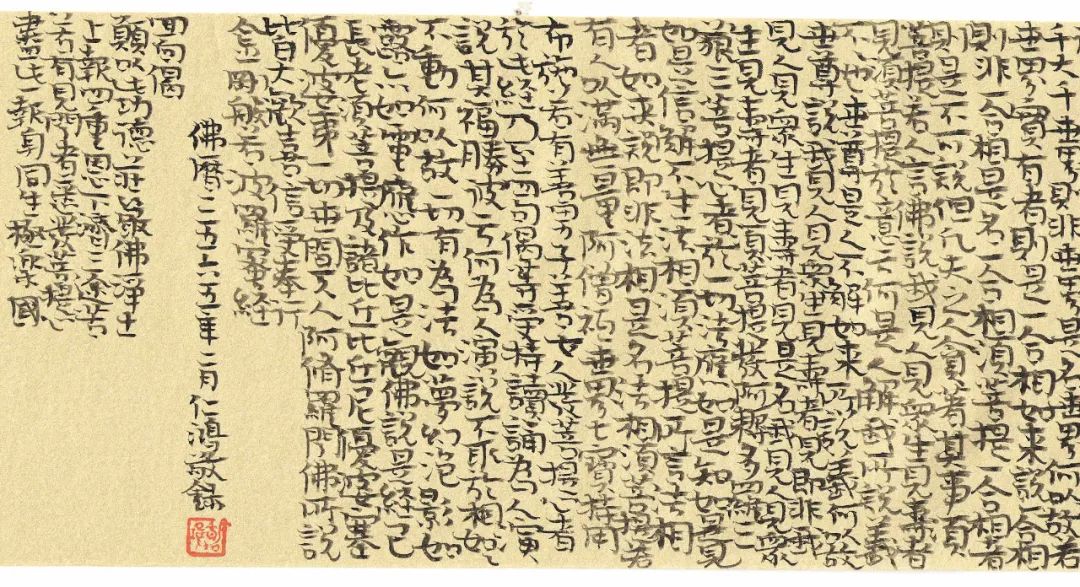 千大千世界則非世界是名世界何以故若
世界實有者則是一合相如來說一合相
則非一合相是名一合相須菩提一合相者
則是不可說但凡夫之人貪著其事須
菩提若人言佛說我見人見眾生見壽者
見須菩提於意云何是人解我所說義
不不也世尊是人不解如來所說義何以故
世尊說我見人見眾生見壽者見即非我
見人見眾生見壽者見是名我見人見眾
生見壽者見須菩提發阿耨多羅三
藐三菩提心者於一切法應如是知如是見
如是信解不生法相須菩提所言法相
者如來說即非法相是名法相須菩提若
有人以滿無量阿僧祇世界七寶持用
布施若有善男子善女人發菩提心者
於此經乃至四句偈等受持讀誦為人演
說其福勝彼云何為人演說不取於相如如
不動何以故一切有為法如夢幻泡影如
露亦如電應作如是觀佛說是經已
長老須菩提及諸比丘比丘尼優婆塞
優婆夷一切世間天人阿脩羅聞佛所說
皆大歡喜信受奉行
金剛般若波羅蜜經
佛曆二五六五年二月仁鴻敬錄
回向偈
願以此功德莊嚴佛淨土
上報四重恩下濟三途苦
若有見聞者悉發菩提心
盡此一報身同生極樂國